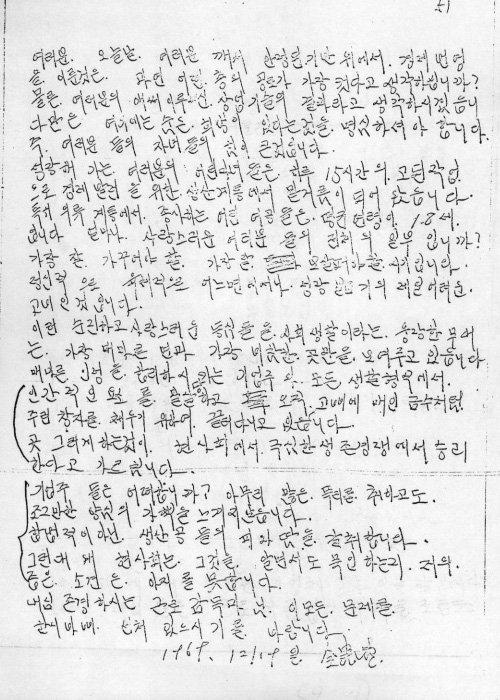 여러분, 오늘날 여러분께서 안정된 기반 위에서 경제 번영
을 이룬것은 과연 어떤 층의 공로가 가장 컷다고 생각하십니까?
물론 여러분의 애써 이루신 상업기술의 결과라고 생각하시겠읍니
다만은 여기에는 숨은 희생이 있다는것을 명심하셔야 합니다.
즉, 여러분들의 자녀들의 힘이 큰것입니다.
성장해 가는 여러분의 어린자녀들은 하루 15시간의 고된 작업
으로 경제발전을 위한 생산계통에서 밑거름이 되어 왔읍니다.
특히 의류 계통에서 종사하는 어린 여공들은 평균 연령이 18세
입니다 얼마나 사랑스러운 여러분들의 전체의 일부 입니까?
가장 잘 가꾸어야 할 가장 잘 보살펴야할 시기입니다.
정신적으로 육체적으로 어느면에서나 성장기의 제일 어려운
고비인것입니다.
이런 순진하고 사랑스러운 동심들을 사회생활이라는 웅장한 무대
는 가장 메마른 면과 가장 비참한 곳만을 보여주고 있읍니다.
메마른 인정을 합리화시키는 기업주와 모든 생활형식에서
인간적인 요소를 말살당하고 오직 고삐에 매인 금수처럼
주린 창자를 채우기 위하여 끌려다니고 있읍니다.
곧 그렇게 하는것이 현사회에서 극심한 생존경쟁에서 승리
한다고 가르칩니다.
기업주들은 어떠합니까? 아무리 많은 폭리를 취하고도
조그만한 양심의 가책을 느끼지 않습니다.
합법적이 아닌 생산공들의 피와 땀을 갈취합니다.
그런데 왜 현사회는 그것을 알면서도 묵인하는지 저의
좁은 소견은 알지를 못합니다.
내심 존경하시는 근로감독관님. 이 모든 문제를
한시바삐 선처 있으시기를 바랍니다.
1969. 12/19일